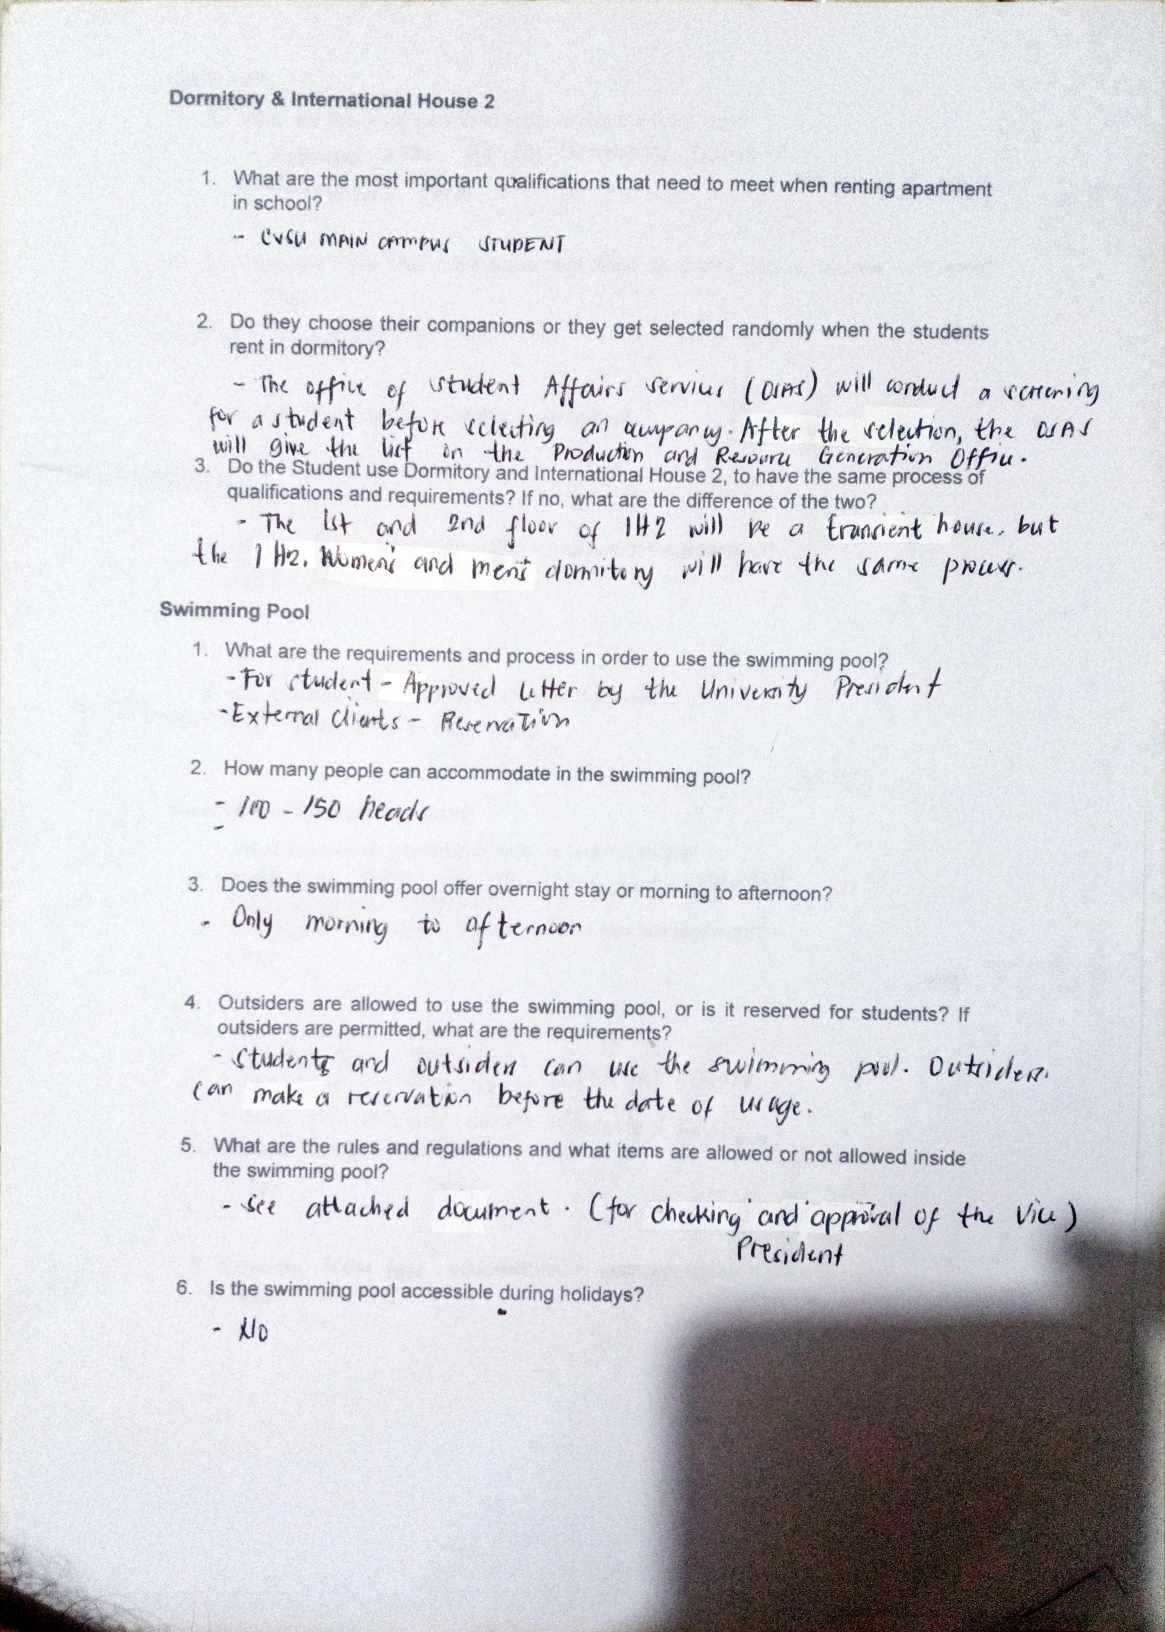 Dormitory & International House 2
1. What are the most important qualifications that need to meet when renting apartment
in school?
- CVSU MAIN CAMPUS STUDENT
2. Do they choose their companions or they get selected randomly when the students
rent in dormitory?
- The office of student Affairs services (OSAS) will conduct a screening
for a student before selecting an occupancy. After the selection, the OSAS
will give the list on the Production and Resource Generation Office.
3. Do the Student use Dormitory and International House 2, to have the same process of
qualifications and requirements? If no, what are the difference of the two?
- The 1st and 2nd floor of IH2 will be a transient house, but
the IH2, Women's and men's dormitory will have the same process.
Swimming Pool
1. What are the requirements and process in order to use the swimming pool?
- For student - Approved letter by the University President
- External clients - Reservation
2. How many people can accommodate in the swimming pool?
- 100 - 150 heads
-
3. Does the swimming pool offer overnight stay or morning to afternoon?
- Only morning to afternoon
4. Outsiders are allowed to use the swimming pool, or is it reserved for students? If
outsiders are permitted, what are the requirements?
- Students and outsiders can use the swimming pool. Outsiders
can make a reservation before the date of usage.
5. What are the rules and regulations and what items are allowed or not allowed inside
the swimming pool?
- See attached document. (for checking and approval of the Vice)
President
6. Is the swimming pool accessible during holidays?
- No